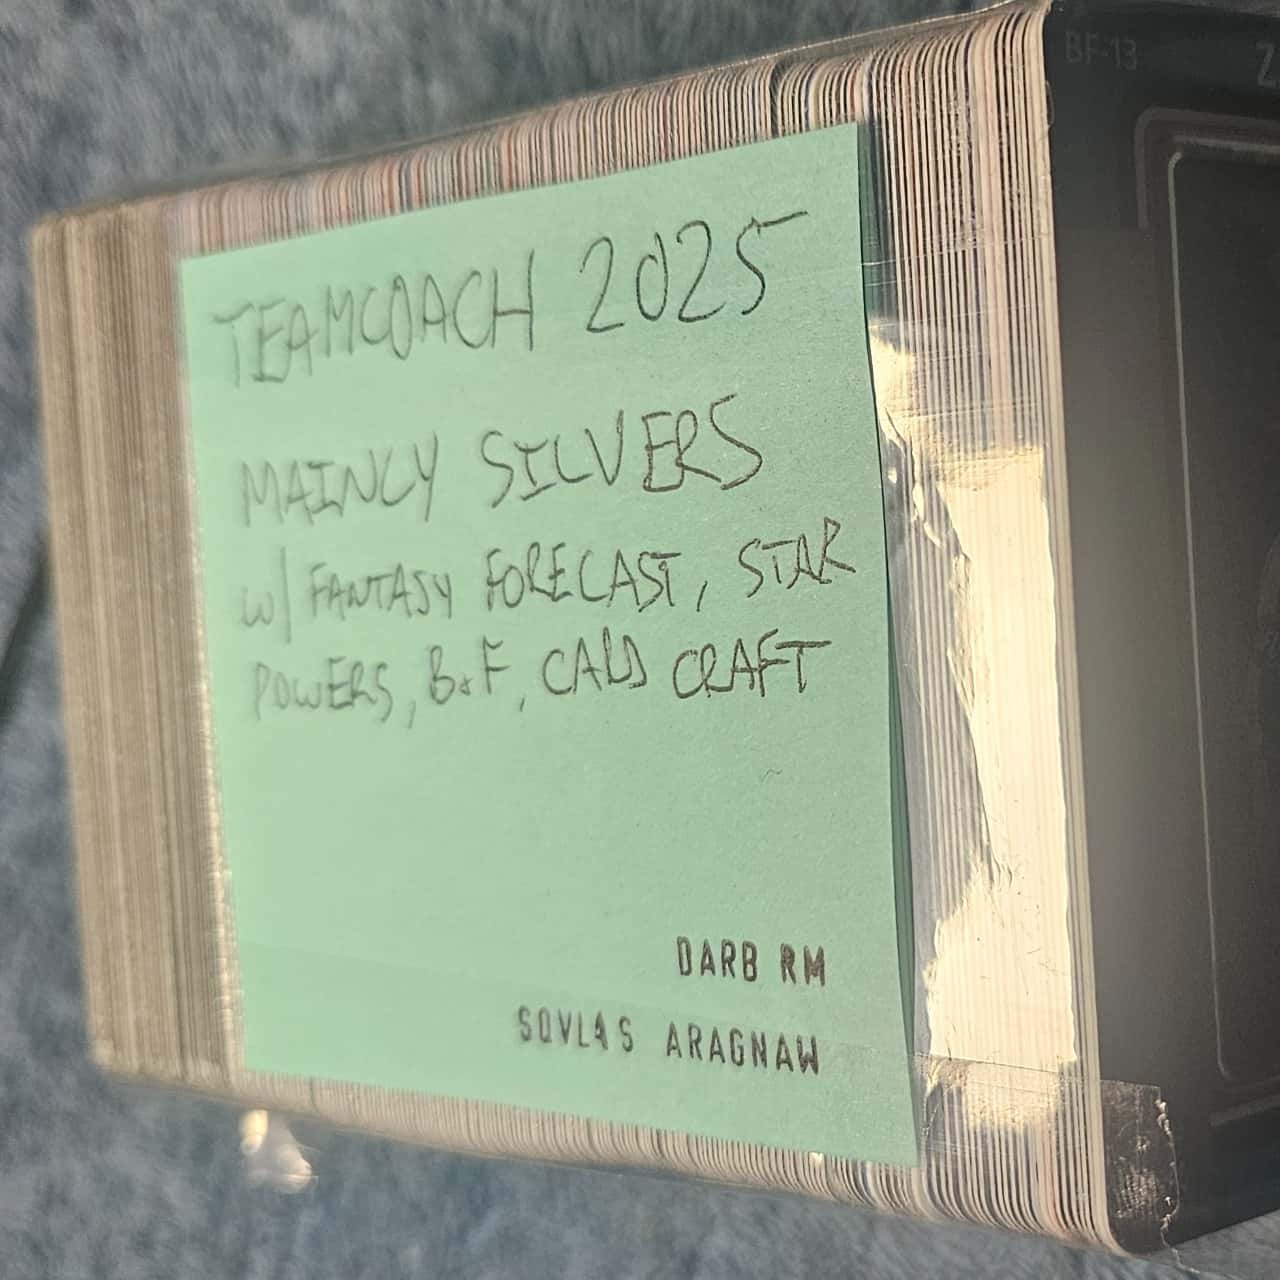 TEAMCOACH 2025
MAINLY SILVERS
w/ FANTASY FORECAST, STAR
POWERS, B&F, CALD CRAFT
DARB RM
SOVL4S ARAGNAW
BF-13